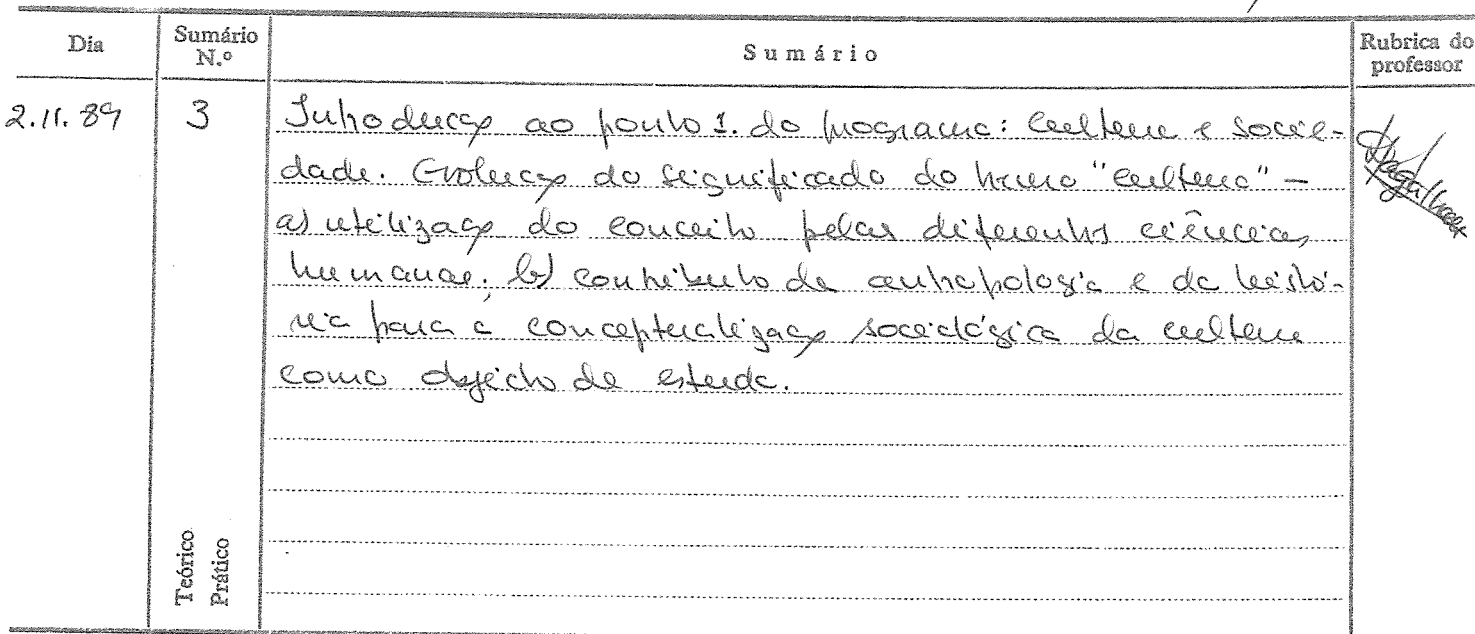 Dia
Sumário N.º
Sumário
Rubrica do professor
2.11.89
3
Introdução ao ponto 1. do programa: Cultura e socie-
dade. Evolução do significado do termo "cultura" –
a) utilização do conceito pelas diferentes ciências
humanas; b) contributo da antropologia e da histó-
ria para a conceptualização sociológica da cultura
como objecto de estudo.
Magalhães
Teórico
Prático